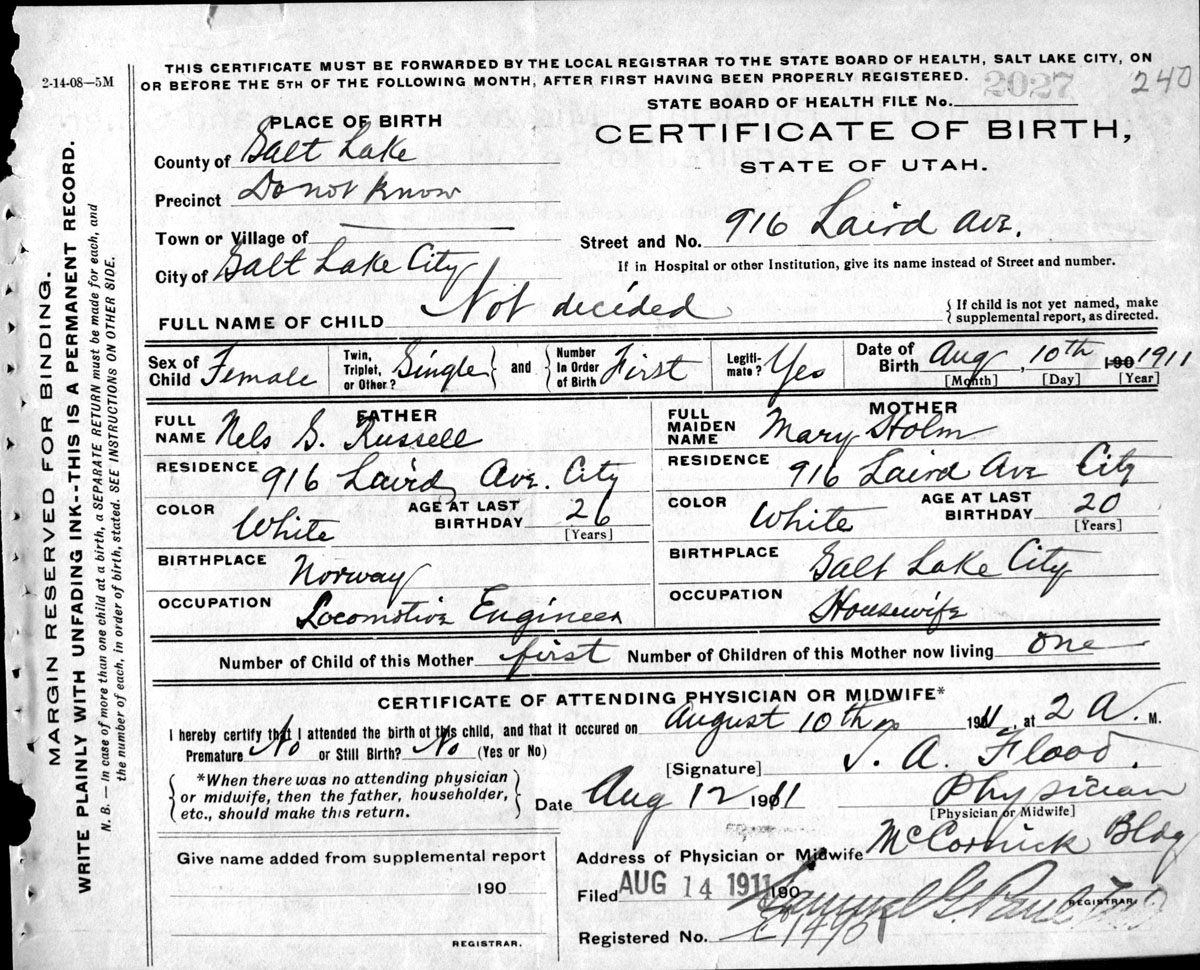 2-14-08—5M
THIS CERTIFICATE MUST BE FORWARDED BY THE LOCAL REGISTRAR TO THE STATE BOARD OF HEALTH, SALT LAKE CITY, ON
OR BEFORE THE 5TH OF THE FOLLOWING MONTH, AFTER FIRST HAVING BEEN PROPERLY REGISTERED.
2027 240
STATE BOARD OF HEALTH FILE No.
PLACE OF BIRTH
CERTIFICATE OF BIRTH,
STATE OF UTAH.
County of Salt Lake
Precinct Do not know
Town or Village of
Street and No. 916 Laird Ave.
City of Salt Lake City
If in Hospital or other Institution, give its name instead of Street and number.
FULL NAME OF CHILD Not decided
{ If child is not yet named, make
supplemental report, as directed.
Sex of Child Female
Twin, Triplet, or Other? Single } and { Number In Order of Birth First
Legiti- mate? Yes
Date of Birth Aug, 10th 190 1911
[Month] [Day] [Year]
FATHER
FULL NAME Nels G. Russell
RESIDENCE 916 Laird Ave. City
COLOR White
AGE AT LAST BIRTHDAY 26
[Years]
BIRTHPLACE Norway
OCCUPATION Locomotive Engineer
MOTHER
FULL MAIDEN NAME Mary Holm
RESIDENCE 916 Laird Ave City
COLOR White
AGE AT LAST BIRTHDAY 20
[Years]
BIRTHPLACE Salt Lake City
OCCUPATION Housewife
Number of Child of this Mother first Number of Children of this Mother now living one
CERTIFICATE OF ATTENDING PHYSICIAN OR MIDWIFE*
I hereby certify that I attended the birth of this child, and that it occured on August 10th 1911, at 2 A. M.
Premature No or Still Birth? No (Yes or No)
[Signature] A. Flood.
{ *When there was no attending physician
or midwife, then the father, householder,
etc., should make this return. }
Date Aug 12 1911
Physician
[Physician or Midwife]
Address of Physician or Midwife McCornick Bldg
Give name added from supplemental report
190
REGISTRAR.
Filed AUG 14 1911 190
Samuel G. Paul
REGISTRAR.
Registered No.
MARGIN RESERVED FOR BINDING.
WRITE PLAINLY WITH UNFADING INK--THIS IS A PERMANENT RECORD.
N. B. — In case of more than one child at a birth, a SEPARATE RETURN must be made for each, and
the number of each, in order of birth, stated. SEE INSTRUCTIONS ON OTHER SIDE.